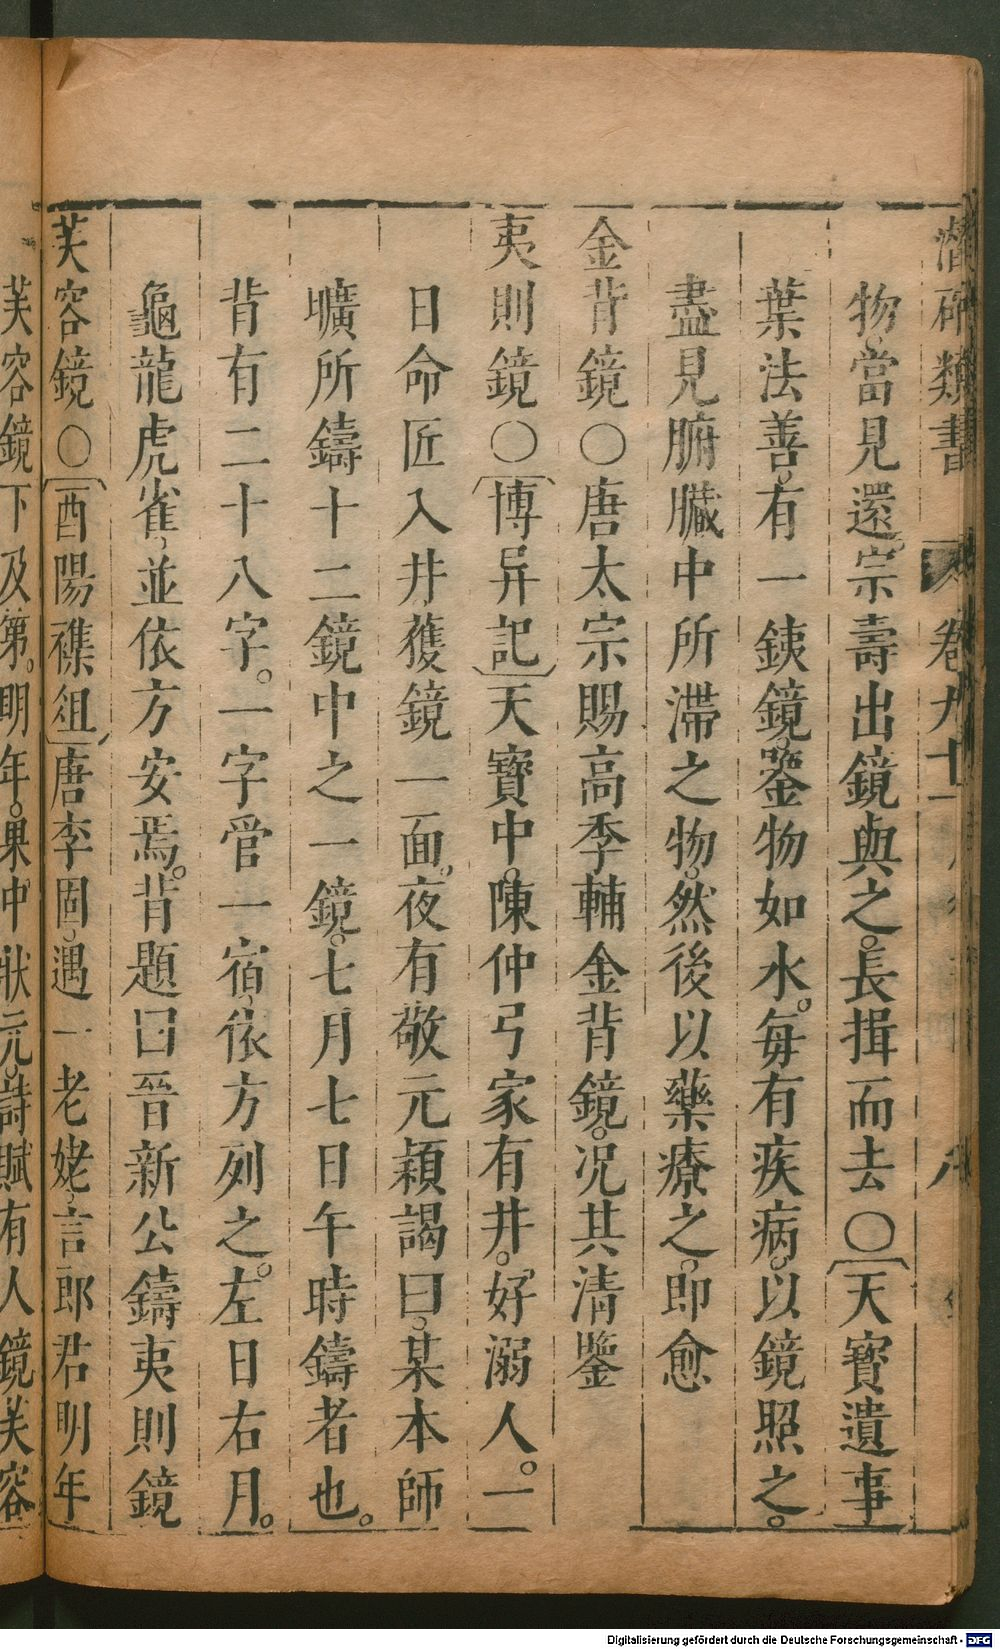 潛確類書 卷九十一 八
物當見還。宗壽出鏡與之。長揖而去〇〔天寶遺事
葉法善。有一銕鏡。鑒物如水。每有疾病。以鏡照之。
盡見腑臟中所滯之物。然後以藥療之。即愈
金背鏡〇唐太宗賜高季輔金背鏡。况其清鑒
夷則鏡〇〔博异記〕天寶中。陳仲弓家有井。好溺人。一
日命匠入井獲鏡一面。夜有敬元穎謁曰。某本師
曠所鑄十二鏡中之一鏡。七月七日午時鑄者也。
背有二十八字。一字管一宿。依方列之。左日右月。
龜龍虎雀。並依方安焉。背題曰晉新公鑄夷則鏡
芙容鏡〇〔酉陽襍俎〕唐李固。遇一老姥。言郎君明年
芙容鏡下及第。明年。果中狀元。詩賦有人鏡芙容
Digitalisierung gefördert durch die Deutsche Forschungsgemeinschaft - DFG